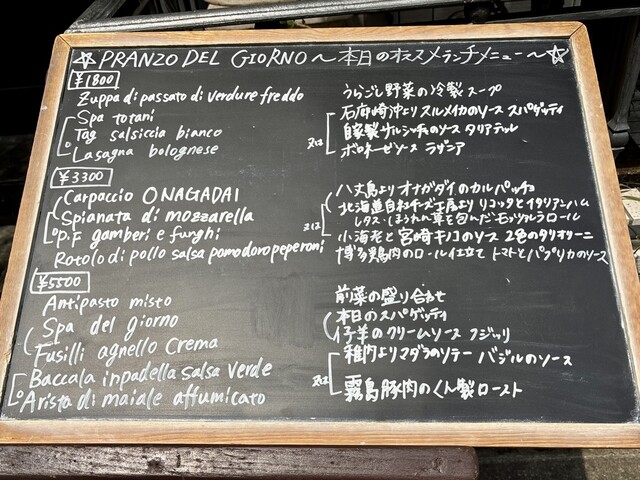 ☆ PRANZO DEL GIORNO ～ 本日のオススメランチメニュー ～ ☆
¥1800
Zuppa di passato di verdure freddo うらごし野菜の冷製スープ
Spa totani 石廊崎沖よりスルメイカのソース スパゲッティ
o Tag salsiccia bianco 又は 自家製サルシッチャのソース タリアテッレ
Lasagna bolognese ボロネーゼソース ラザニア
¥3300
Carpaccio ONAGADAI 八丈島よりオナガダイのカルパッチョ
Spianata di mozzarella 又は 北海道白糠チーズ工房よりリコッタとイタリアンハム
レタス・ほうれん草を包んだモッツァレラロール
o P.F gamberi e funghi 小海老と宮崎キノコのソース 2色のタリオリーニ
Rotolo di pollo salsa pomodoro peperoni 博多鶏肉のロール仕立て トマトとパプリカのソース
¥5500
Antipasto misto 前菜の盛り合わせ
Spa del giorno 本日のスパゲッティ
Fusilli agnello crema 仔羊のクリームソース フジッリ
Baccala inpadella salsa verde 稚内よりマダラのソテー バジルのソース
o 又は
Arista di maiale affumicato 霧島豚肉のくん製ロースト